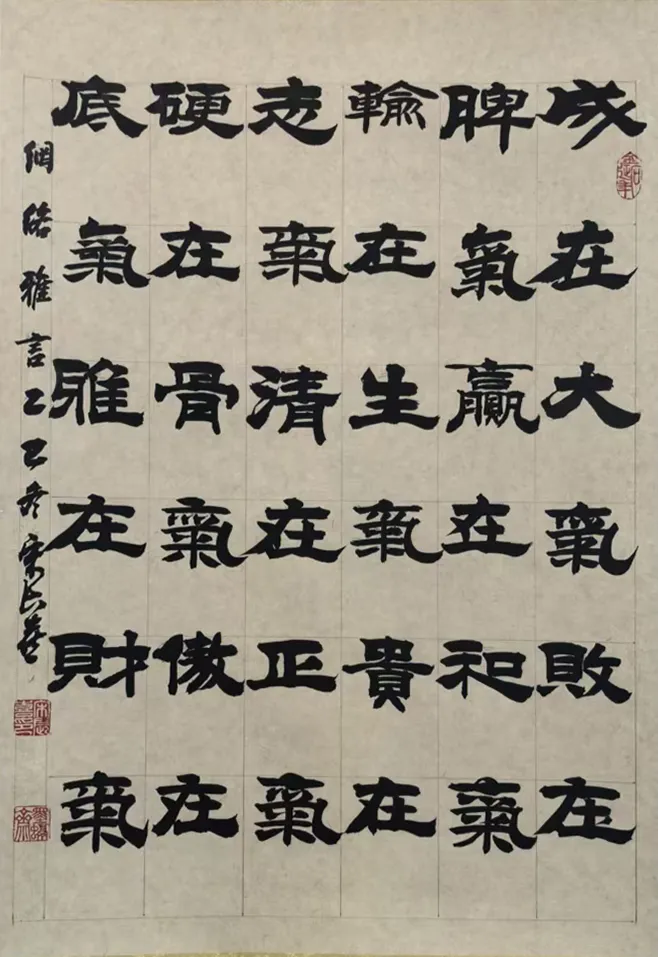 成在大氣敗在
脾氣贏在和氣
輸在生氣貴在
志氣清在正氣
硬在骨氣傲在
底氣雅在財氣
網絡雅言乙巳冬宋長